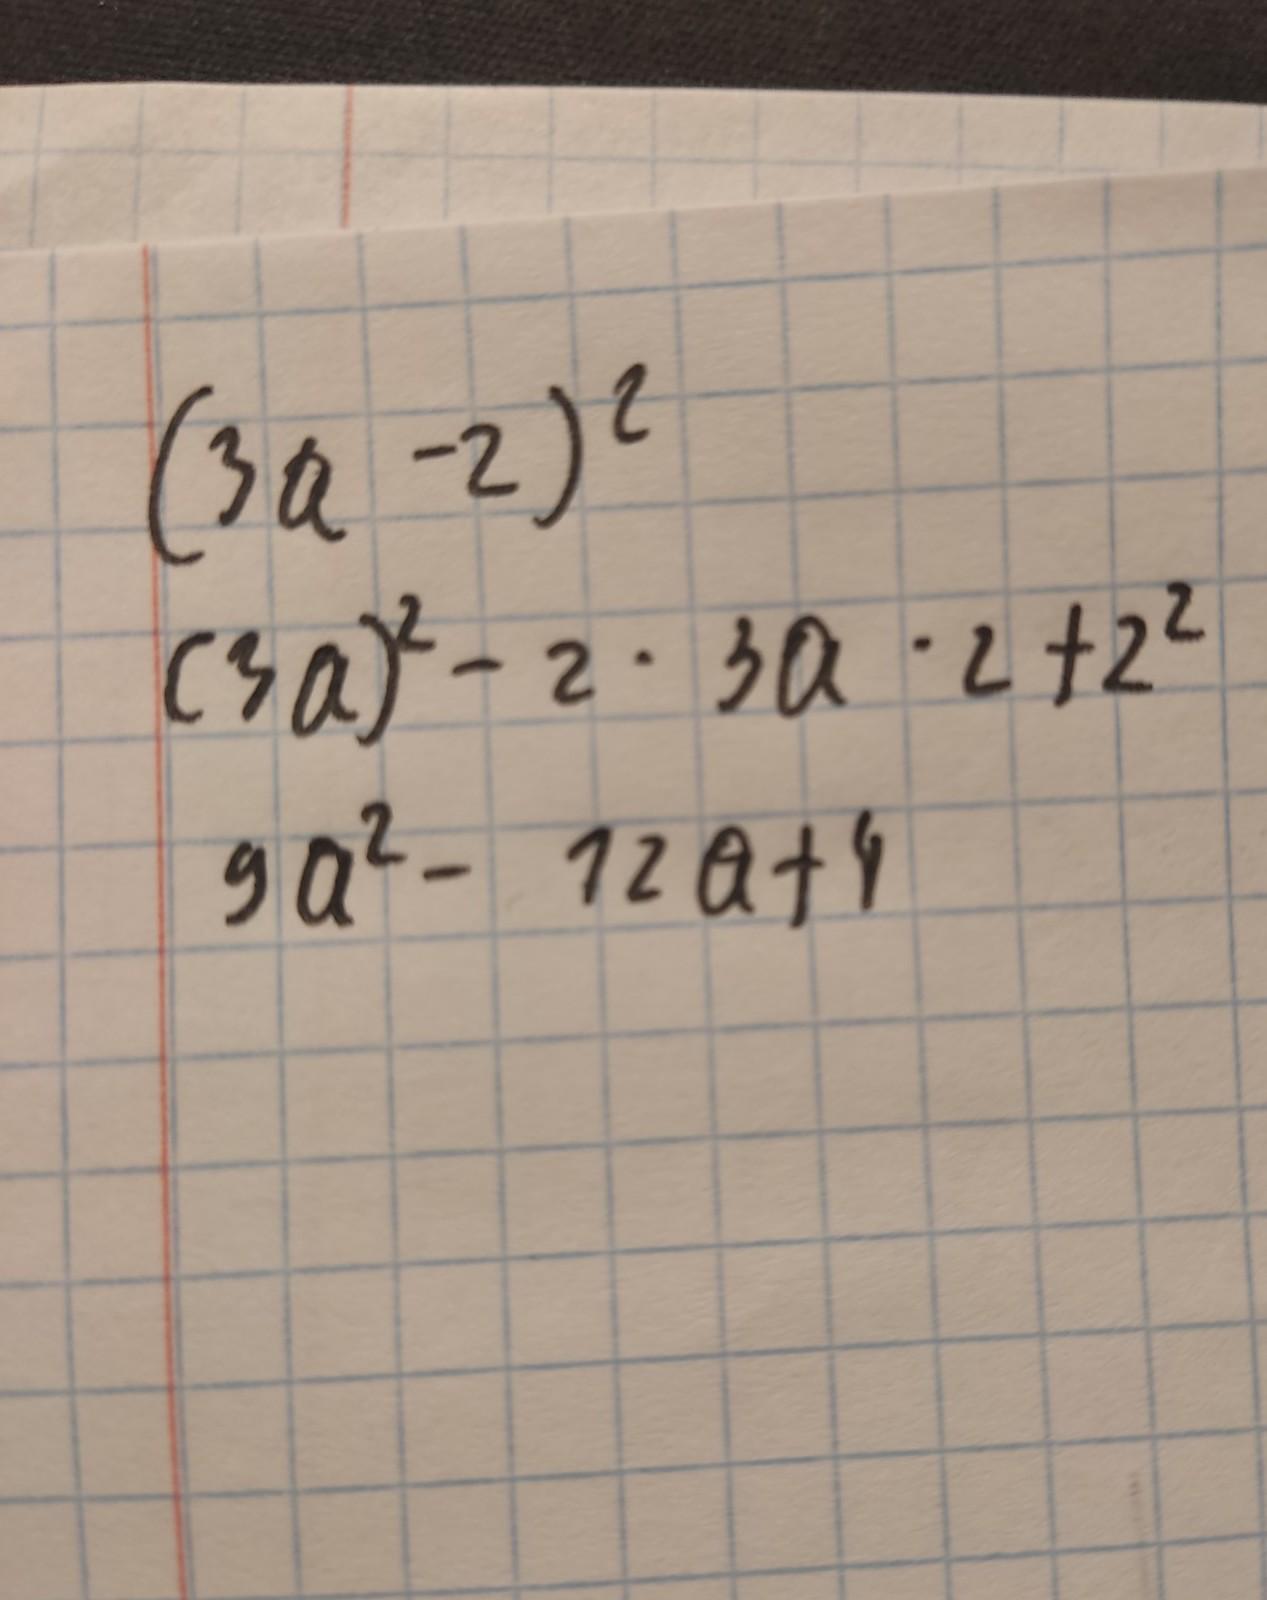 (3a -2)²
(3a)² - 2 · 3a · 2 + 2²
9a² - 12a + 4